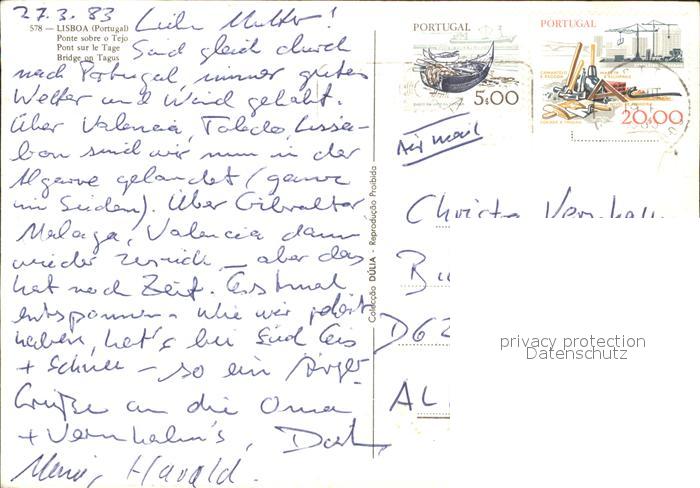 27.3.83 Liebe Mutter!
578 — LISBOA (Portugal)
Ponte sobre o Tejo
Pont sur le Tage
Bridge on Tagus
Sind gleich durch
nach Portugal immer gutes
Wetter und Wind gehabt.
Über Valencia, Toledo, Lissa-
bon sind wir nun in der
Algarve gelandet (ganz
im Süden). Über Gibraltar,
Malaga, Valencia dann
wieder zurück – aber das
hat noch Zeit. Erstmal
entspannen – wie wir gehört
haben, hat's bei Euch Eis
+ Schnee – so ein Ärger
Grüße an die Oma
+ Vernhalm's,
Harald.
Colecção DÚLIA - Reprodução Proibida
PORTUGAL
5$00
PORTUGAL
20$00
Air mail
Christa
D62
AL
privacy protection
Datenschutz